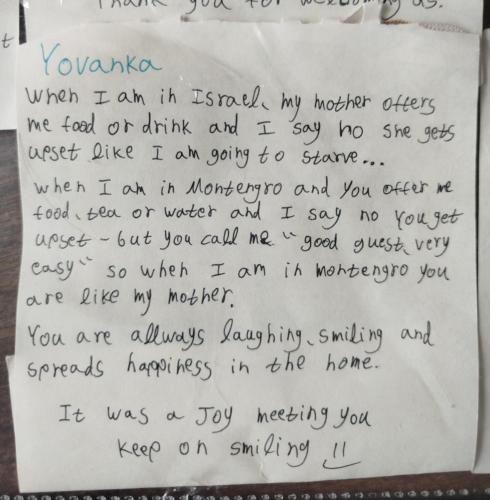 Thank you for welcoming us.
t
Yovanka
When I am in Israel, my mother offers
me food or drink and I say no she gets
upset like I am going to starve...
when I am in Montengro and you offer me
food, tea or water and I say no you get
upset - but you call me "good guest, very
easy" so when I am in montengro you
are like my mother.
You are allways laughing, smiling and
spreads happiness in the home.
It was a Joy meeting you
keep on smiling !!